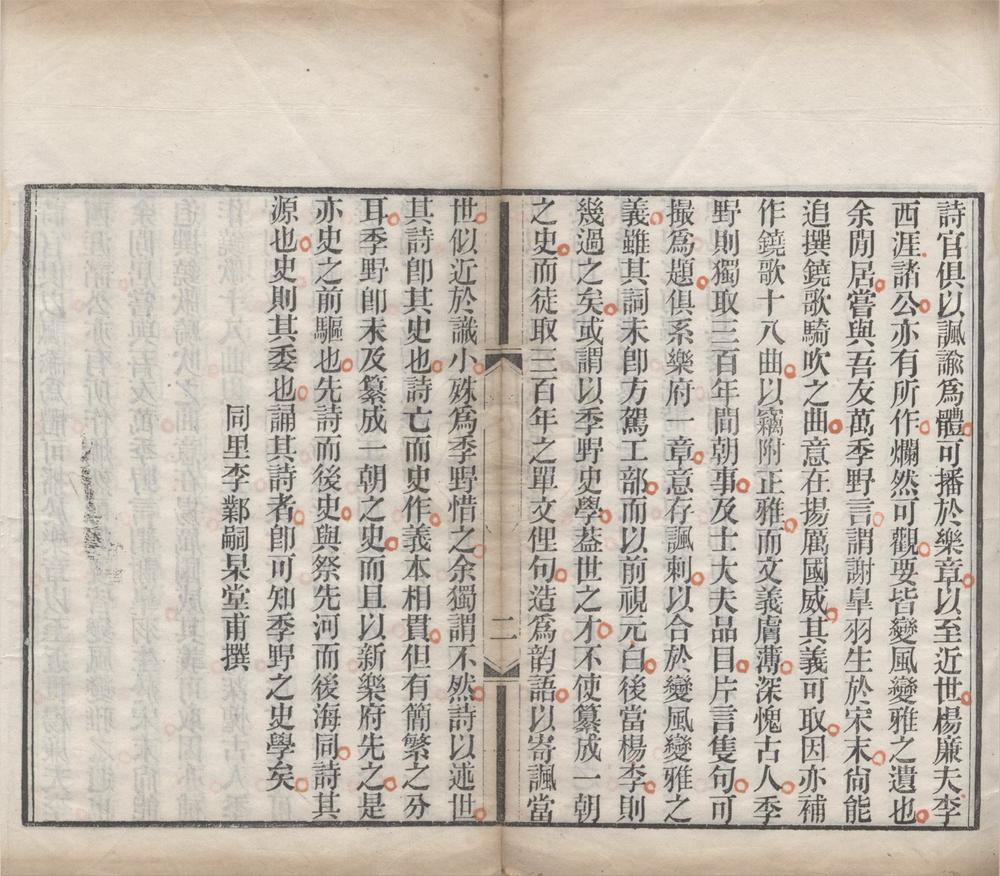 詩官俱以諷諭爲體可播於樂章以至近世楊廉夫李
西涯諸公亦有所作爛然可觀要皆變風變雅之遺也
余閒居嘗與吾友萬季野言謂謝皐羽生於宋末尙能
追撰鐃歌騎吹之曲意在揚厲國威其義可取因亦補
作鐃歌十八曲以竊附正雅而文義膚薄深愧古人季
野則獨取三百年間朝事及士大夫品目片言隻句可
撮爲題俱系樂府一章意存諷刺以合於變風變雅之
義雖其詞未卽方駕工部而以前視元白後當楊李則
幾過之矣或謂以季野史學葢世之才不使纂成一朝
之史而徒取三百年之單文俚句造爲韵語以寄諷當
二
世似近於識小殊爲季野惜之余獨謂不然詩以述世
其詩卽其史也詩亡而史作義本相貫但有簡繁之分
耳季野卽未及纂成一朝之史而且以新樂府先之是
亦史之前驅也先詩而後史與祭先河而後海同詩其
源也史則其委也誦其詩者卽可知季野之史學矣
同里李鄴嗣杲堂甫撰